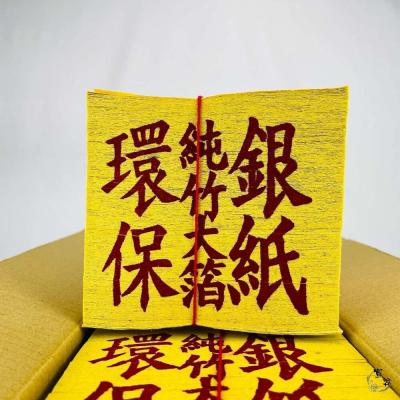 環保
純竹大箔
銀紙
環保
純竹大
銀紙